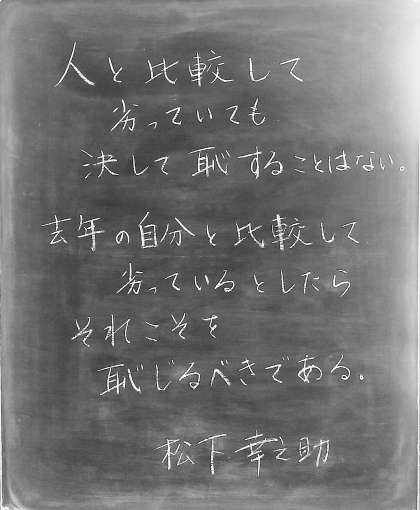 人と比較して
劣っていても
決して恥することはない。
去年の自分と比較して
劣っているとしたら
それこそを
恥じるべきである.
松下幸之助